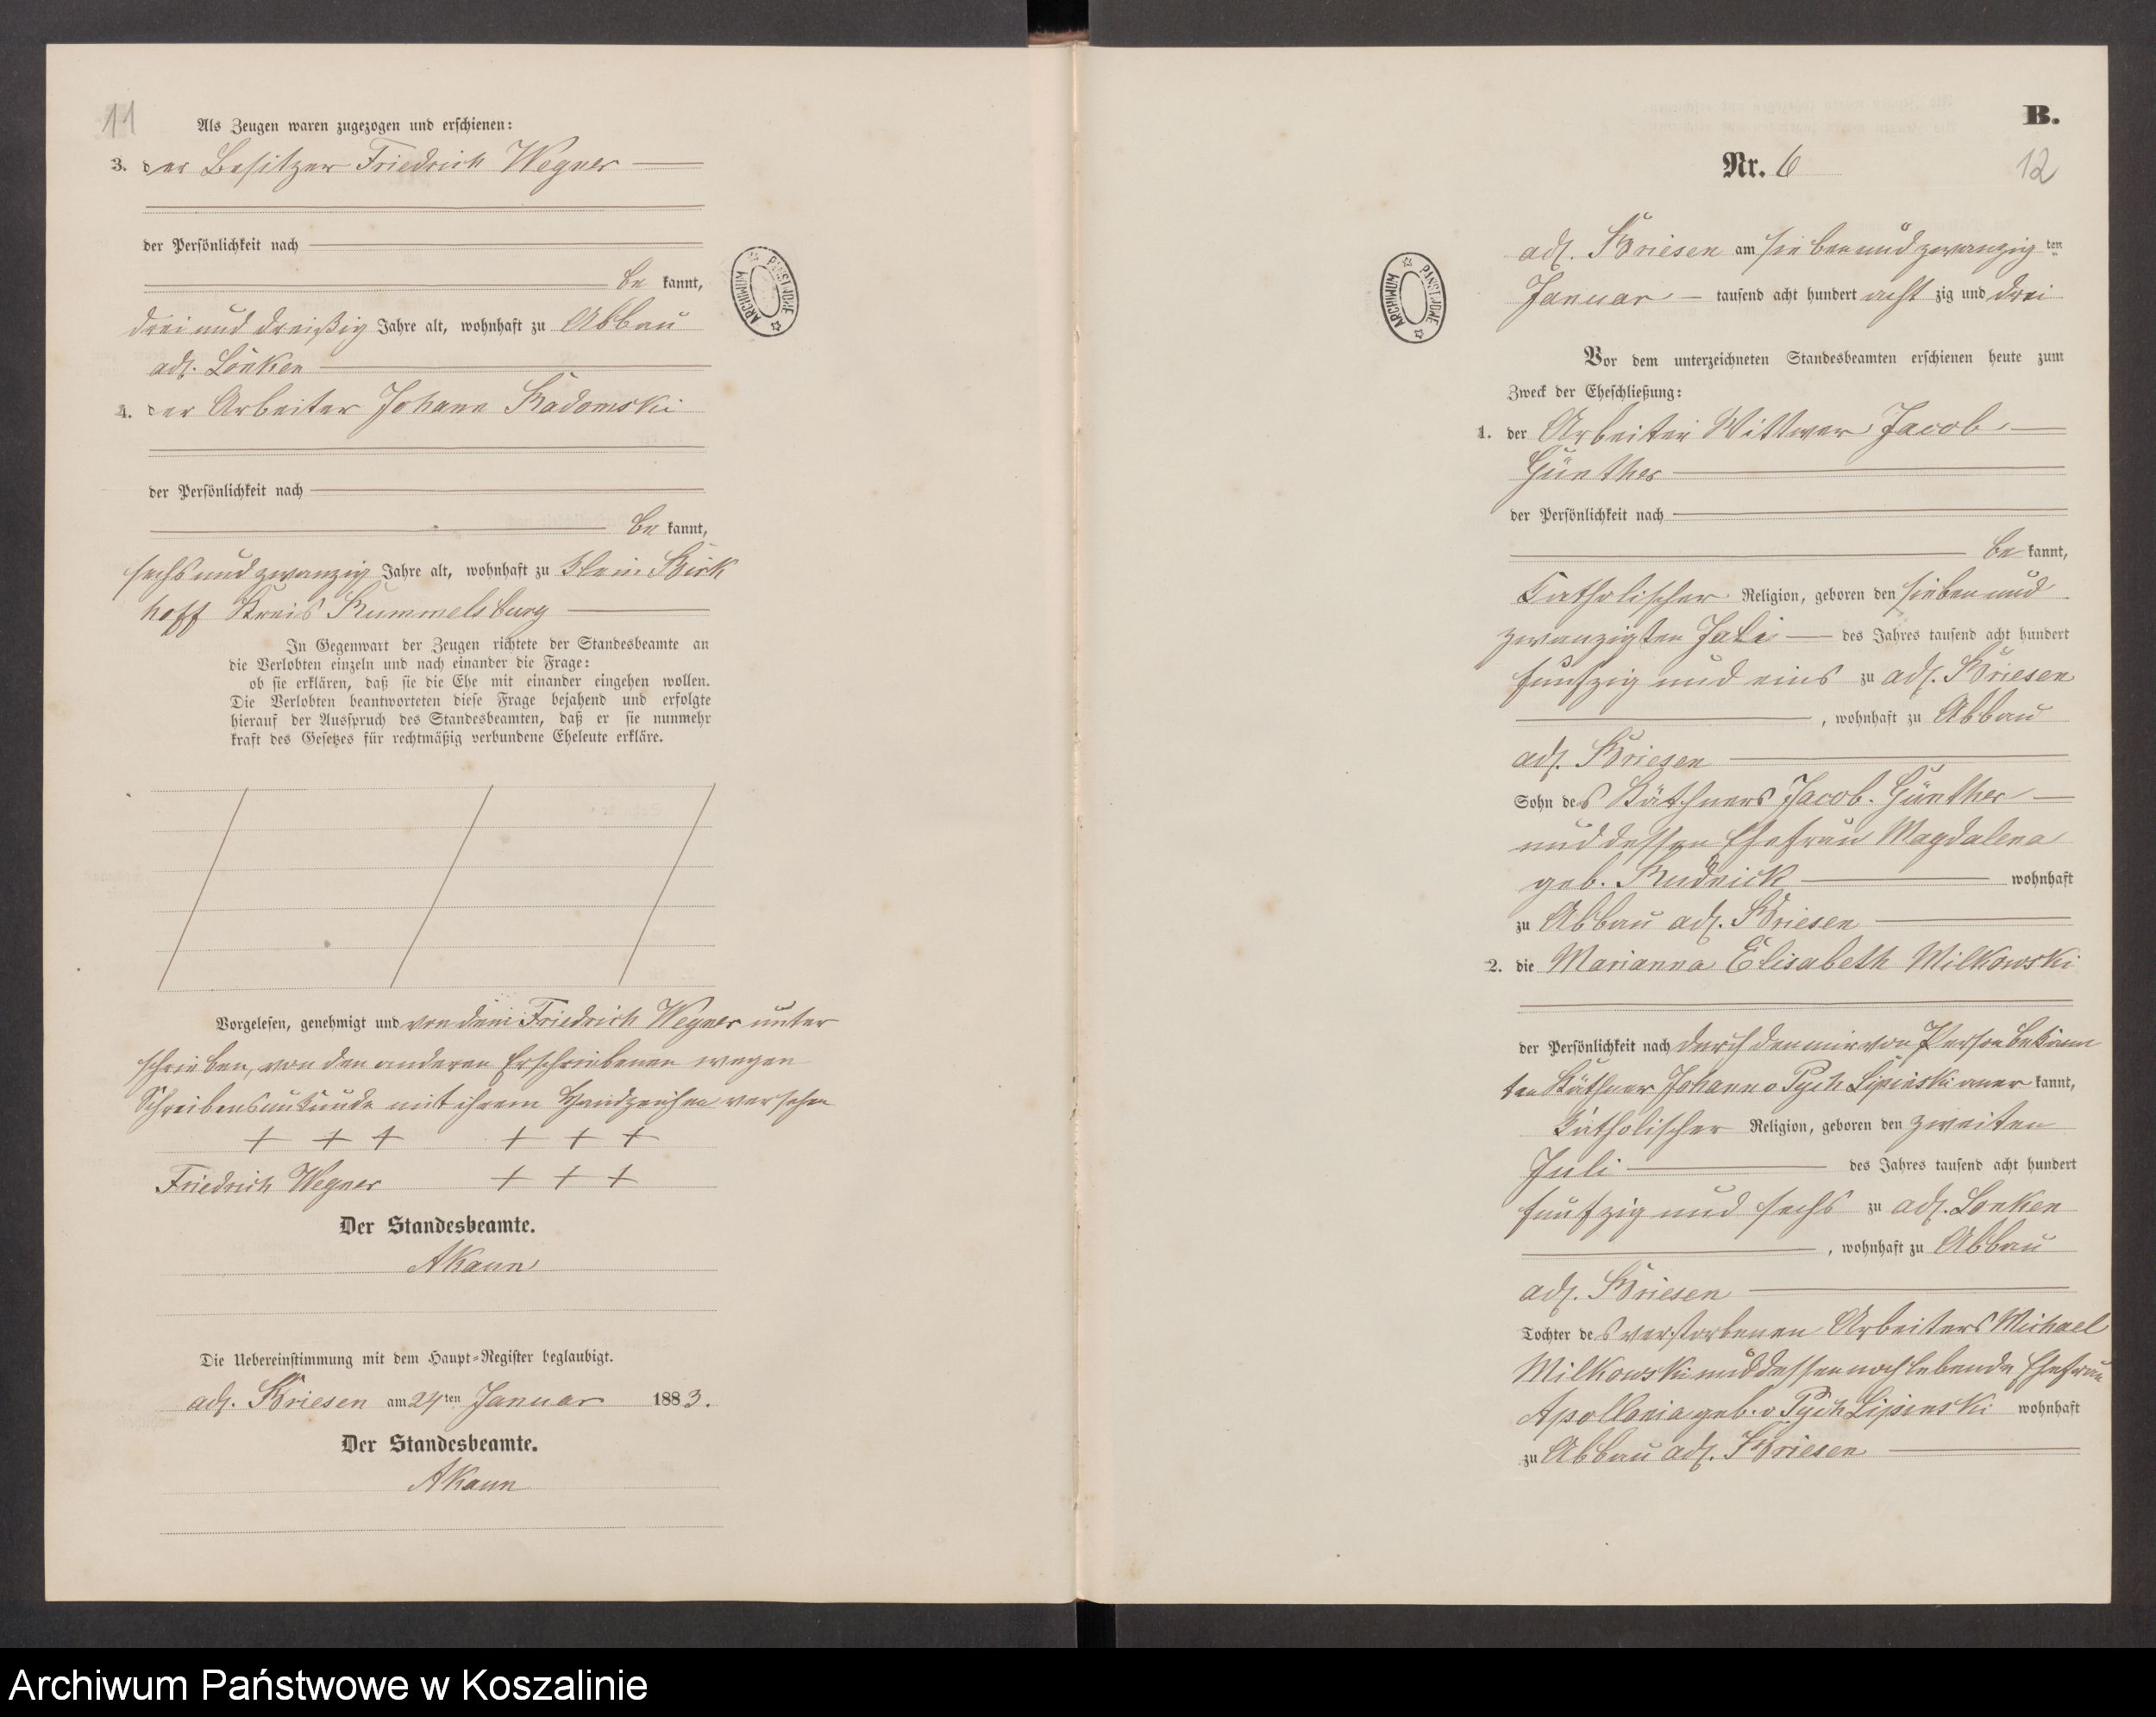 11
Als Zeugen waren zugezogen und erschienen:
3. der Besitzer Friedrich Wegner
der Persönlichkeit nach
be kannt,
drei und dreißig Jahre alt, wohnhaft zu Abbau
adl. Lonken
4. der Arbeiter Johann Radomski
der Persönlichkeit nach
be kannt,
sechs und zwanzig Jahre alt, wohnhaft zu Klein
hoff Kreis Rummelsburg
In Gegenwart der Zeugen richtete der Standesbeamte an
die Verlobten einzeln und nach einander die Frage:
ob sie erklären, daß sie die Ehe mit einander eingehen wollen.
Die Verlobten beantworteten diese Frage bejahend und erfolgte
hierauf der Ausspruch des Standesbeamten, daß er sie nunmehr
kraft des Gesetzes für rechtmäßig verbundene Eheleute erkläre.
Vorgelesen, genehmigt und von dem Friedrich Wegner unter
schrieben, von den anderen Erschienenen wegen
Schreibensunkunde mit ihrem Handzeichen versehen
+ + + + + +
Friedrich Wegner + + +
Der Standesbeamte.
AKaun
Die Uebereinstimmung mit dem Haupt-Register beglaubigt.
adl. Briesen am 24ten Januar 1883.
Der Standesbeamte.
AKaun
ARCHIWUM PAŃSTWOWE
B.
Nr. 6
12
ARCHIWUM PAŃSTWOWE
adl. Briesen am sieben und zwanzig ten
Januar tausend acht hundert acht zig und drei
Vor dem unterzeichneten Standesbeamten erschienen heute zum
Zweck der Eheschließung:
1. der Arbeiter Wittwer Jacob
Günther
der Persönlichkeit nach
be kannt,
katholischer Religion, geboren den sieben und
zwanzigsten Juli des Jahres tausend acht hundert
funfzig und eins zu adl. Briesen
, wohnhaft zu Abbau
adl. Briesen
Sohn des Käthners Jacob Günther
und dessen Ehefrau Magdalena
geb. Rudnick wohnhaft
zu Abbau adl. Briesen
2. die Marianna Elisabeth Milkowski
der Persönlichkeit nach durch den mir von Person bekann
ten Käthner Johann v Pych Lipinski aner kannt,
katholischer Religion, geboren den zweiten
Juli des Jahres tausend acht hundert
funfzig und sechs zu adl. Lonken
, wohnhaft zu Abbau
adl. Briesen
Tochter des verstorbenen Arbeiters Michael
Milkowski und dessen noch lebende Ehefrau
Apollonia geb. v Pych Lipinski wohnhaft
zu Abbau adl. Briesen
Archiwum Państwowe w Koszalinie